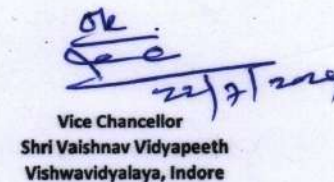 Ok
22/7/202
Vice Chancellor
Shri Vaishnav Vidyapeeth
Vishwavidyalaya, Indore